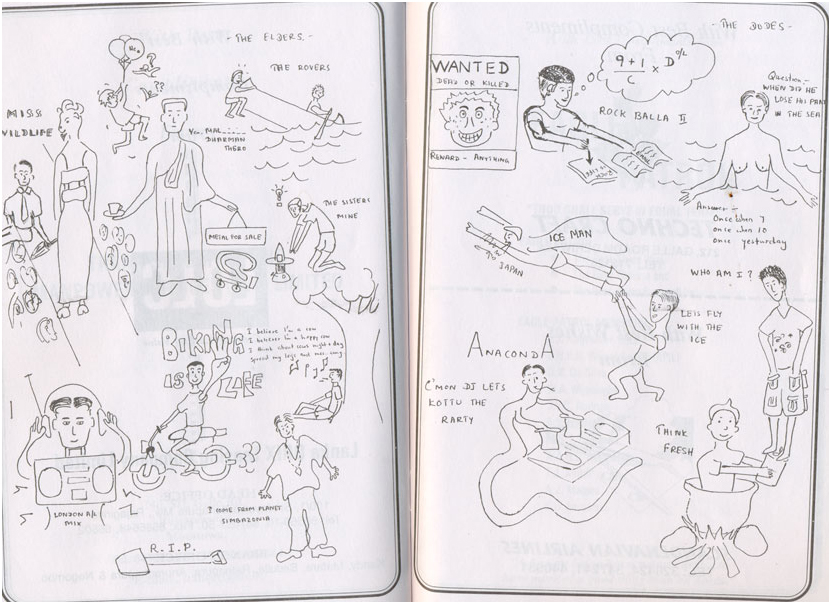 - THE ELDERS. -
BEA
THE ROVERS
MISS
WILDLIFE
Ven. MAL_____
DHARMAN
THERO
THE SISTERS
MINE
METAL FOR SALE
BIKING
IS LIFE
I believe I'm a cow
I believe I'm a happy cow
I think about cows night & day
Spread my legs and moo. away
LONDON A/L
MIX
I COME FROM PLANET
SIMBAZONIA
R.I.P.
- THE DUDES -
WANTED
DEAD OR KILLED
REWARD - ANYTHING
9+1 x D O/L
C
ROCK BALLA II
Question -
WHEN DID HE
LOSE HIS PART
IN THE SEA
Answer -
Once when 7
once when 10
once yesturday
ICE MAN
JAPAN
WHO AM I?
LETS FLY
WITH THE
ICE
ANACONDA
C'MON DJ LETS
KOTTU THE
RARTY
THINK
FRESH